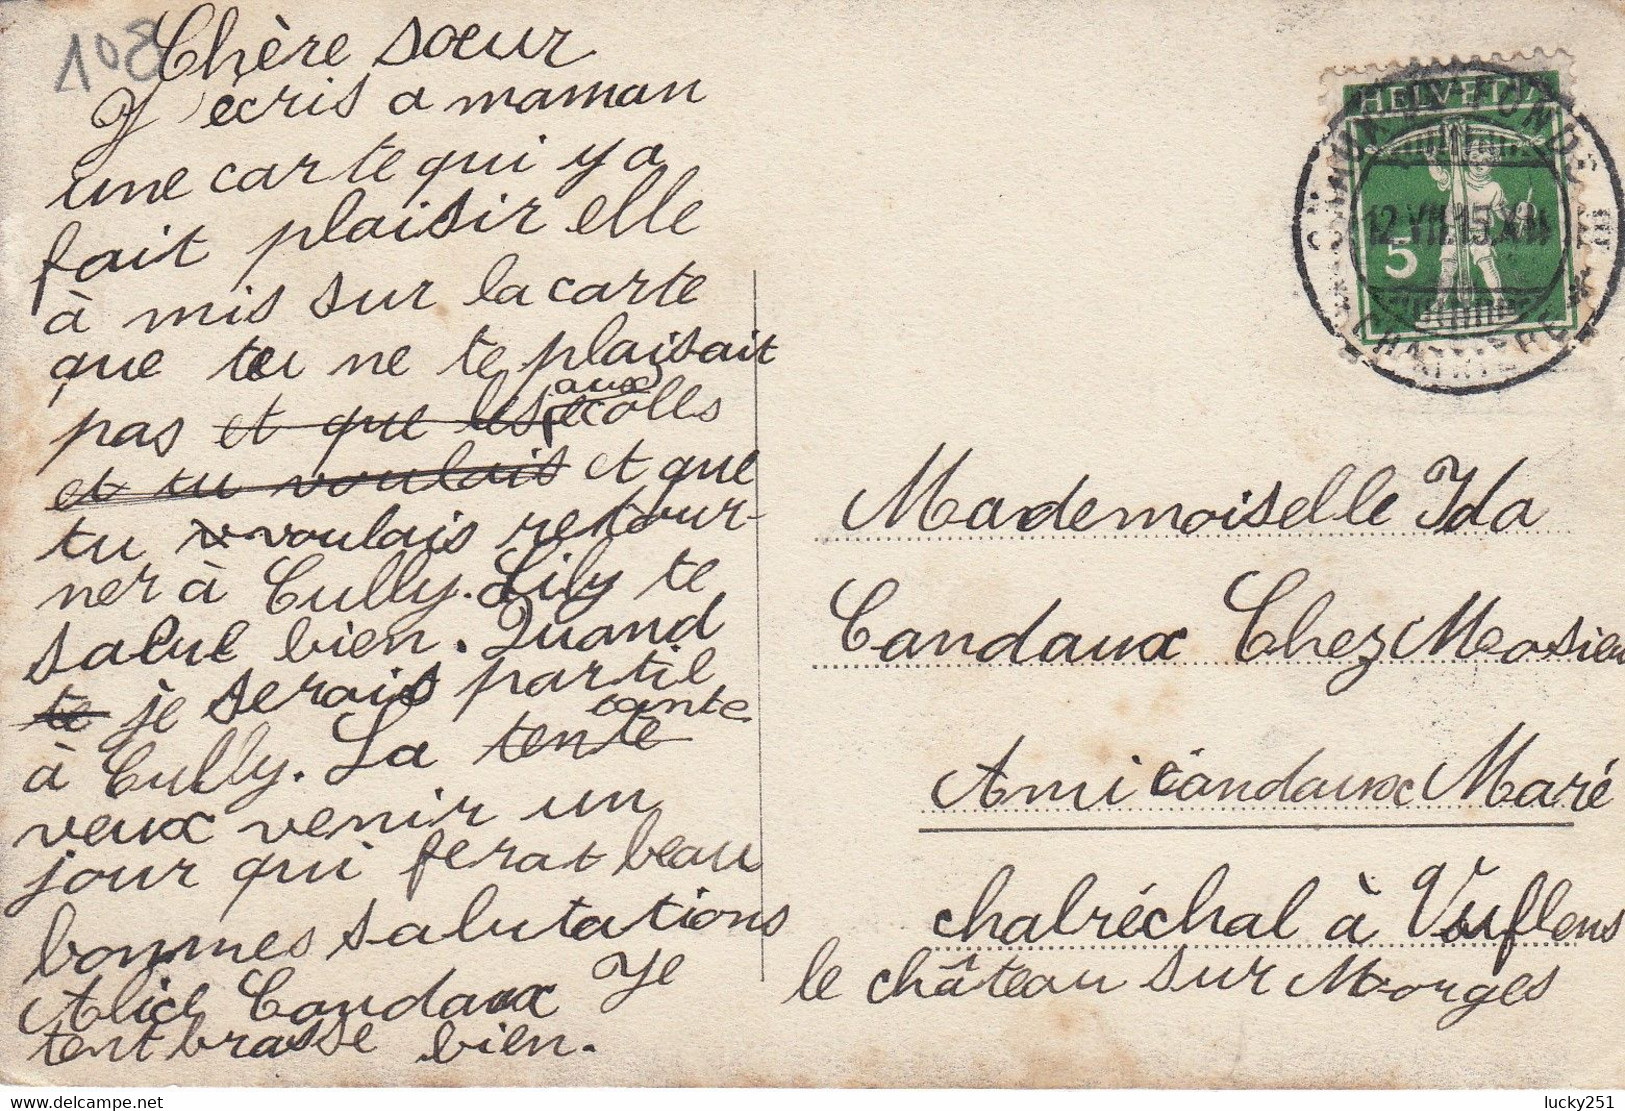 108
Chère sœur
J'écris a maman
une carte qui y a
fait plaisir elle
à mis sur la carte
que tu ne te plaisait
pas et que les aux écolles
et tu voulais et que
tu v voulais retour-
ner à Cully. Lily te
salut bien. Quand
te je serais partil
à Cully. La tente tante
veux venir un
jour qui ferat beau
bonnes salutations
Alice Candaux Je
tent brasse bien.
HELVETIA
5
CHAUX-DE-FONDS
12.VII.15.XII
Mademoiselle Ida
Candaux Chez Mosieu
Ami Candaux Maré
chalréchal à Vufflens
le château sur Morges
lucky251